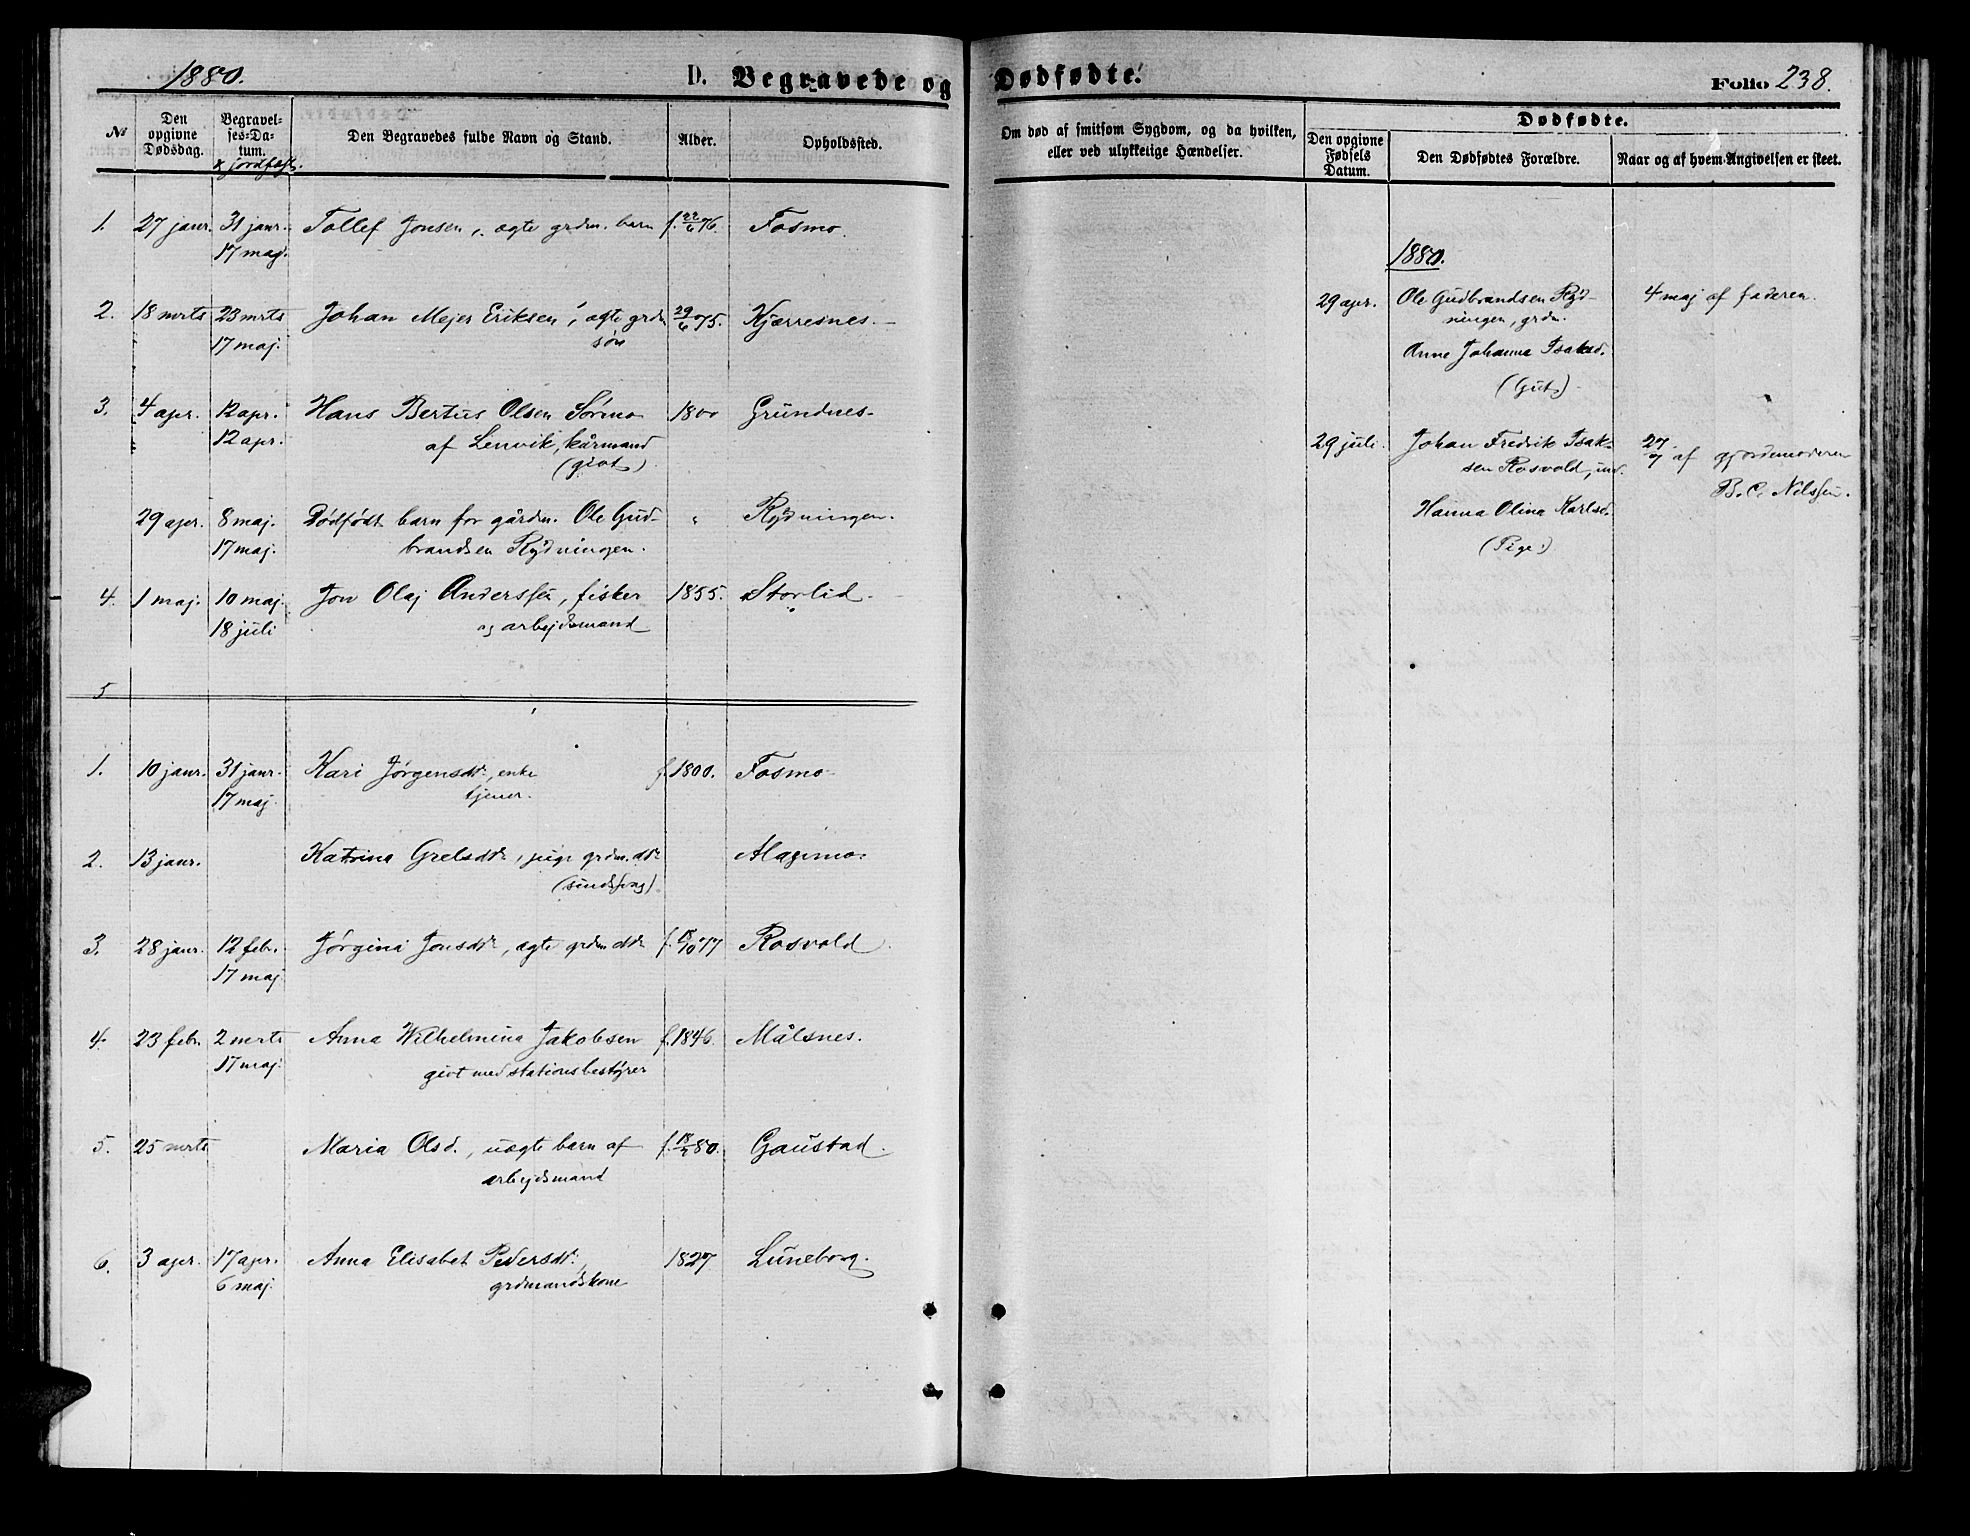 1880.
D. Begravede og
№
Den opgivne Dødsdag.
Begravelses-Datum.
& jordfæst.
Den Begravedes fulde Navn og Stand.
Alder.
Opholdssted.
1. 27 janr. 31 janr. Tollef Jonsen, ægte grdm. barn f. 22/6 76. Fosmo.
17 maj.
2. 18 mrts 23 mrts Johan Mejer Eriksen, ægte grdm 29/6 75. Kjærresnes.
17 maj. søn
3. 4 apr. 12 apr. Hans Bertus Olsen Sørmo 1800 Grundnes.
12 apr. af Lenvik, kårmand
(givt)
29 apr. 8 maj. Dødfødt barn for gårdm. Ole Gud- " Rydningen.
17 maj. brandsen Rydningen.
4. 1 maj. 10 maj. Jon Olaj Anderssen, fisker 1855. Storlid.
18 juli og arbejdsmand
5
1. 10 janr. 31 janr. Kari Jørgensdtr, enke f. 1800. Fosmo
17 maj. tjener.
2. 13 janr. Katrina Grelsdtr, pige grdm. dtr Alapmo.
(sindssvag).
3. 28 janr. 12 febr. Jørgina Jonsdtr, ægte grdm dtr f. 18/10 77 Rosvold.
17 maj.
4. 23 febr. 2 mrts Anna Wilhelmina Jakobsen f. 1846. Målsnes.
17 maj. givt med stationsbestyrer
5. 25 mrts Maria Olsd., uægte barn af f. 80. Gaustad.
arbejdsmand
6. 3 apr. 17 apr. Anna Elisabet Pedersdtr, 1827 Luneborg.
6 maj. grdmandskone
Dødfødte.
Folio 238.
Om død af smitsom Sygdom, og da hvilken,
eller ved ulykkelige Hændelser.
Dødfødte.
Den opgivne Fødsels Datum.
Den Dødfødtes Forældre.
Naar og af hvem Angivelsen er skeet.
1880.
29 apr. Ole Gudbrandsen Ryd- 4 maj af faderen.
ningen, grdm.
Anne Johanna Isaksd.
(Gut)
29 juli. Johan Fredrik Isak- 27/7 af gjordemoderen
sen Rosvold, ind. B. C. Nilssen.
Hanna Olina Karlsd.
(Pige)